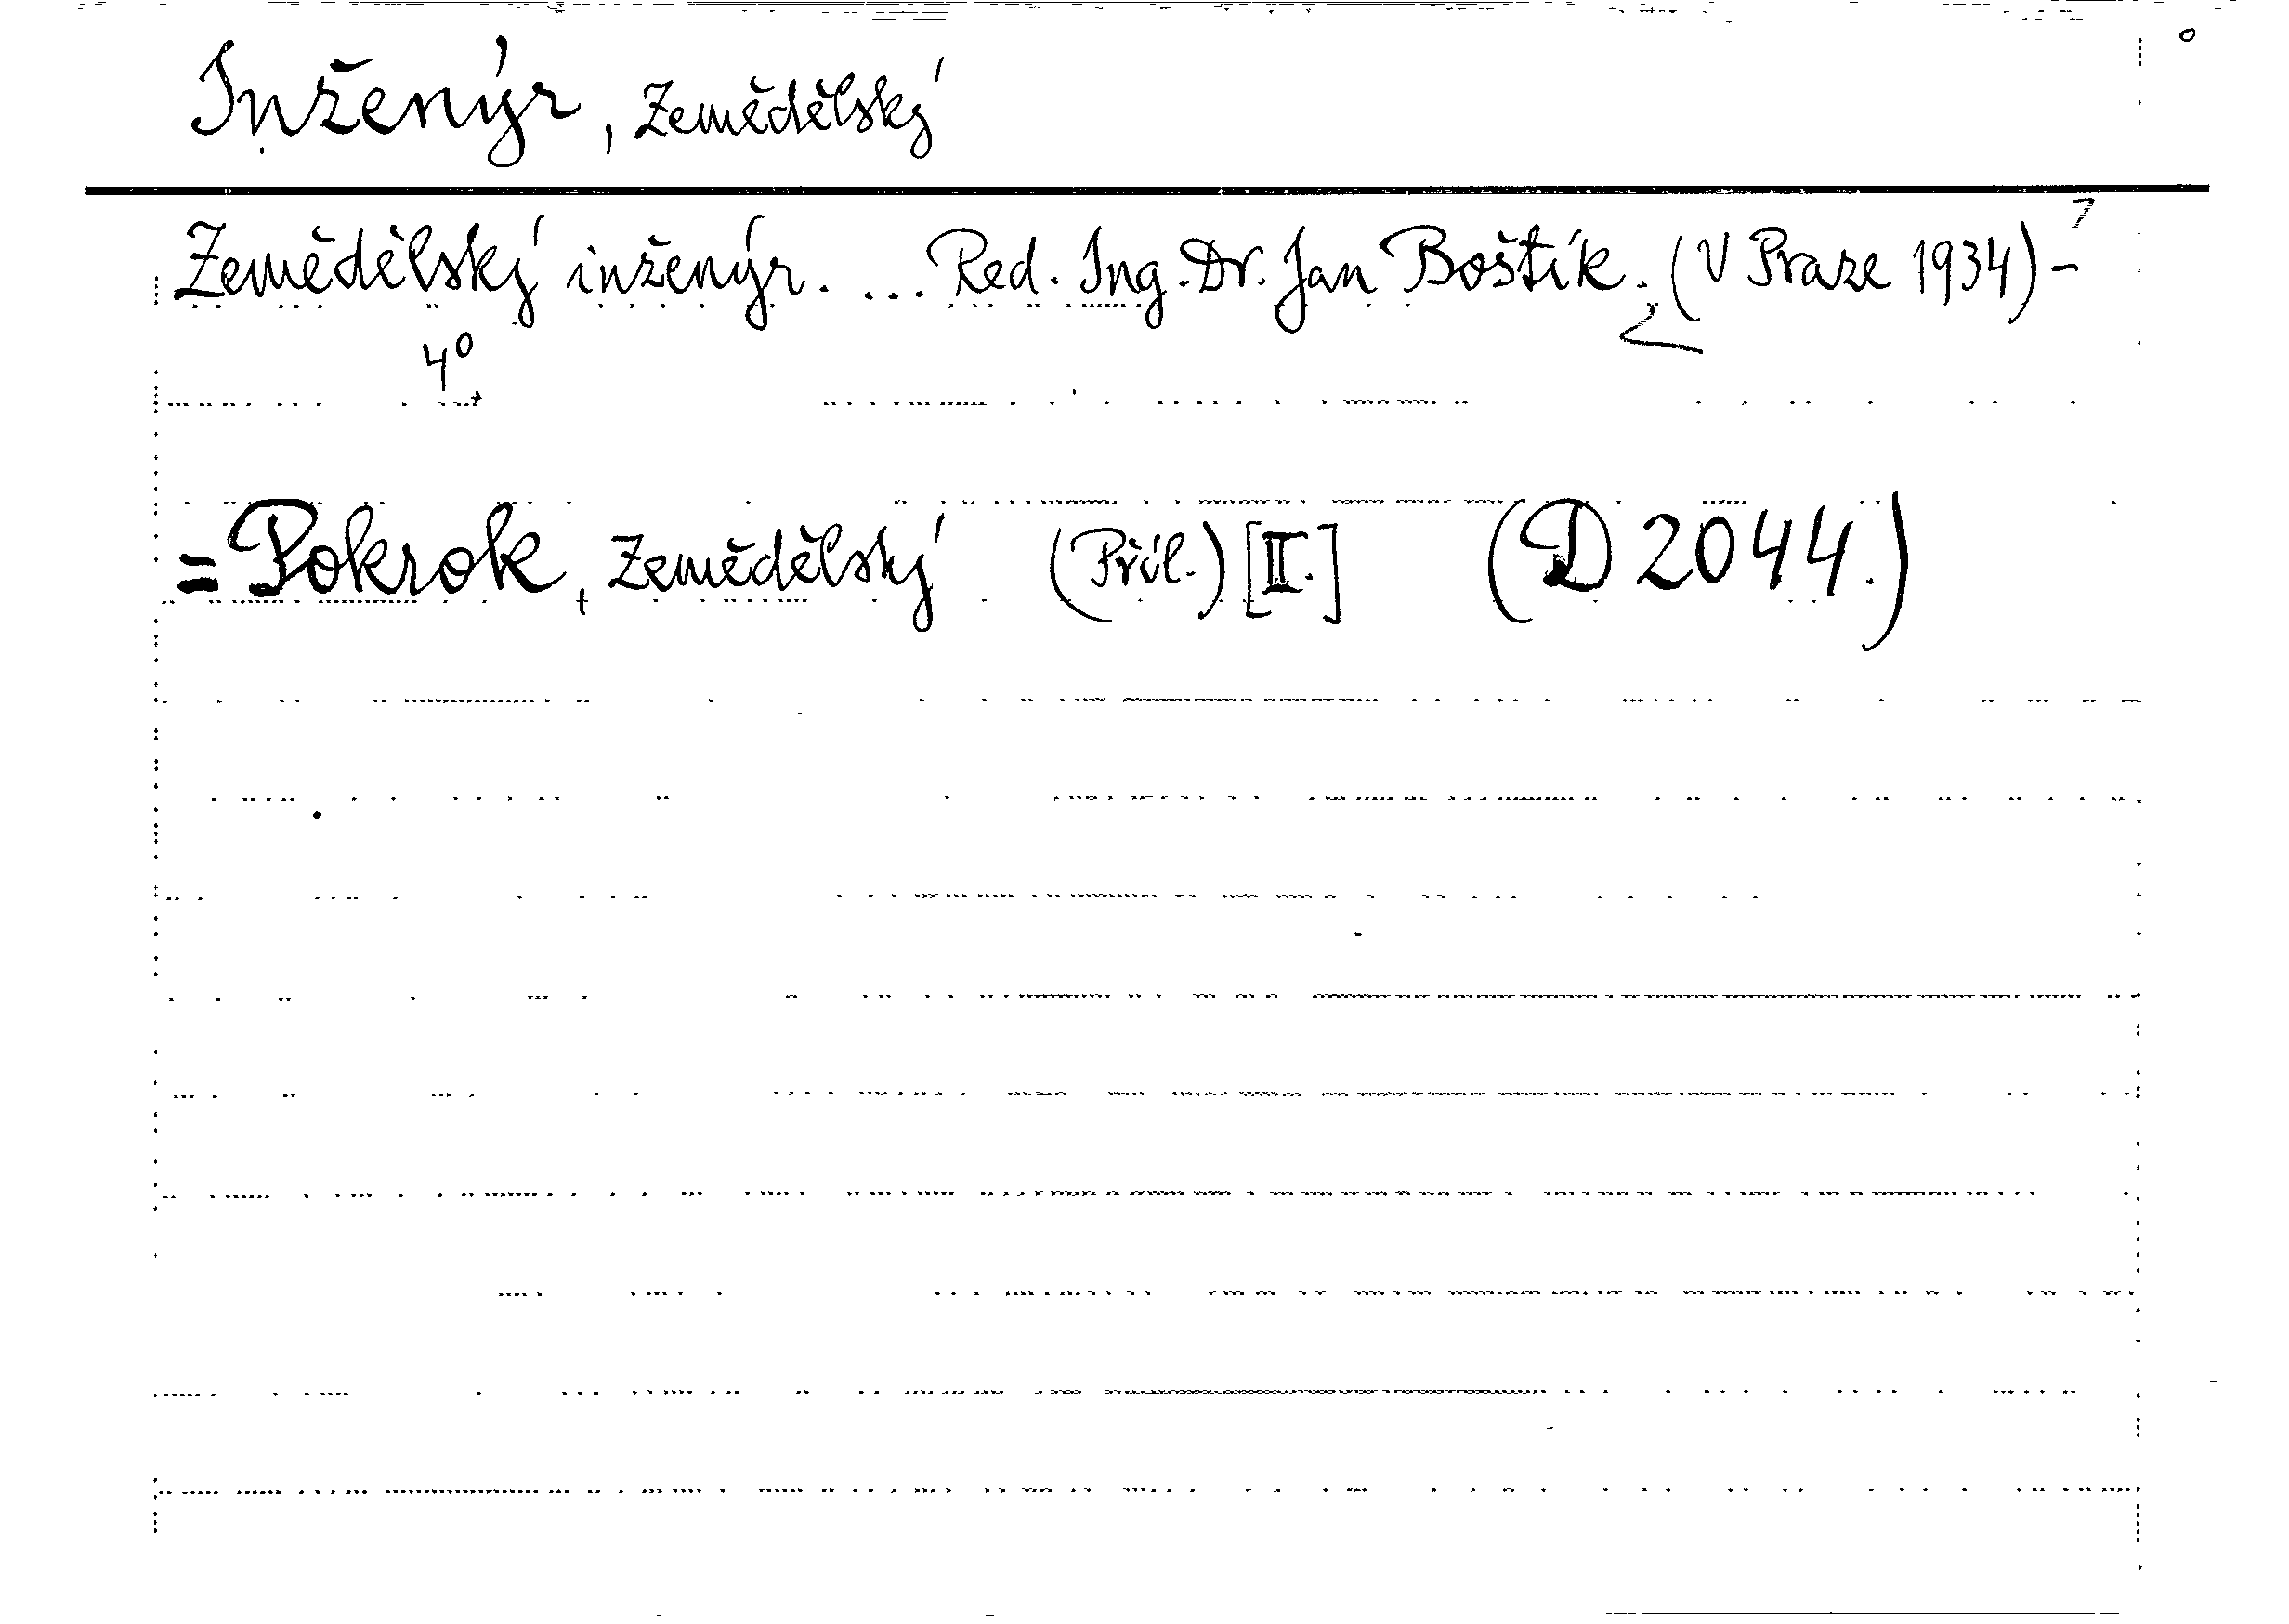 Inženýr, Zemědělský
Zemědělský inženýr. ... Red. Ing. Dr. Jan Boštík. (V Praze 1934) -
4°
= Pokrok, Zemědělský (Příl.) [II.] (D 2044.)